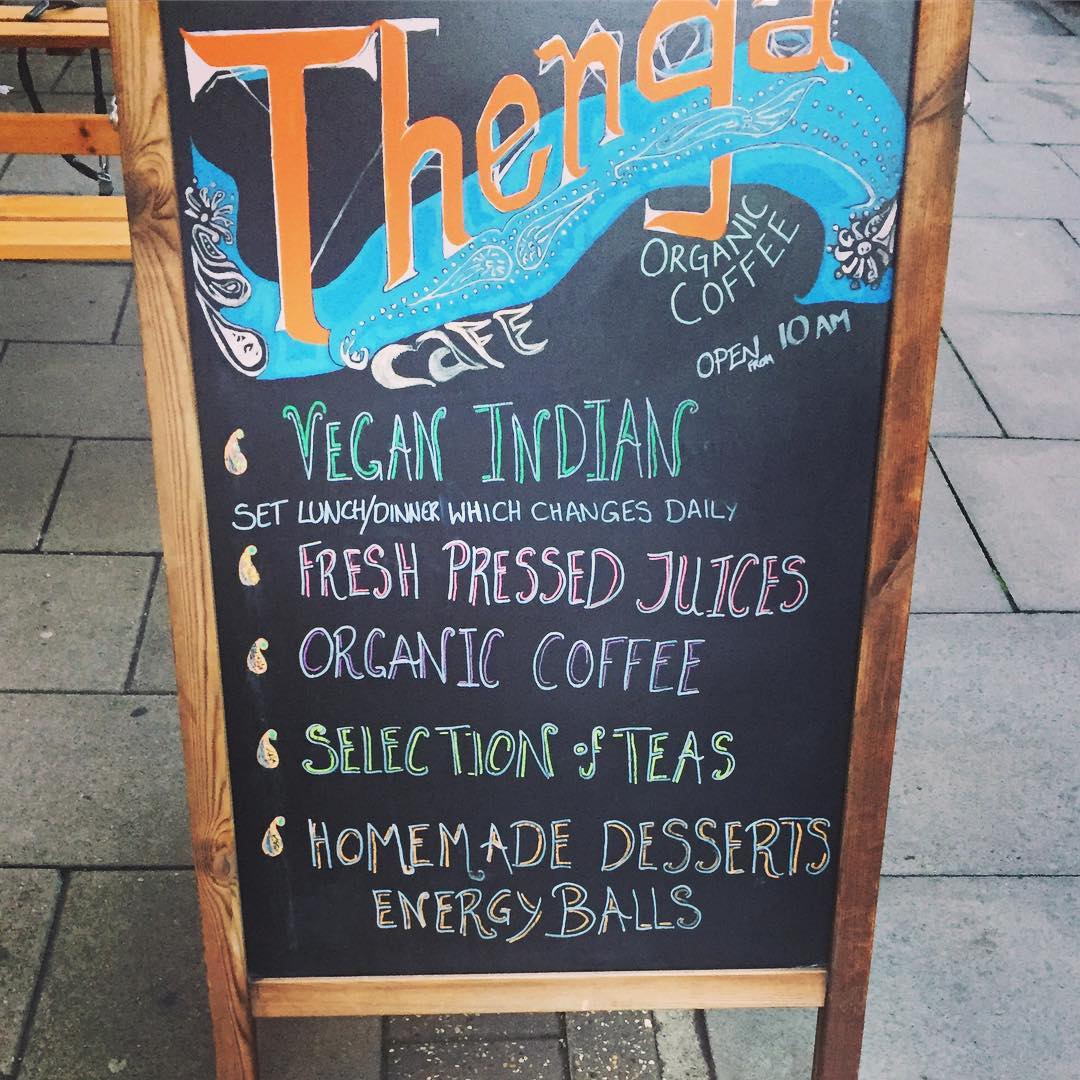 Thenga
CAFE
ORGANIC
COFFEE
OPEN FROM 10 AM
VEGAN INDIAN
SET LUNCH/DINNER WHICH CHANGES DAILY
FRESH PRESSED JUICES
ORGANIC COFFEE
SELECTION of TEAS
HOMEMADE DESSERTS
ENERGY BALLS